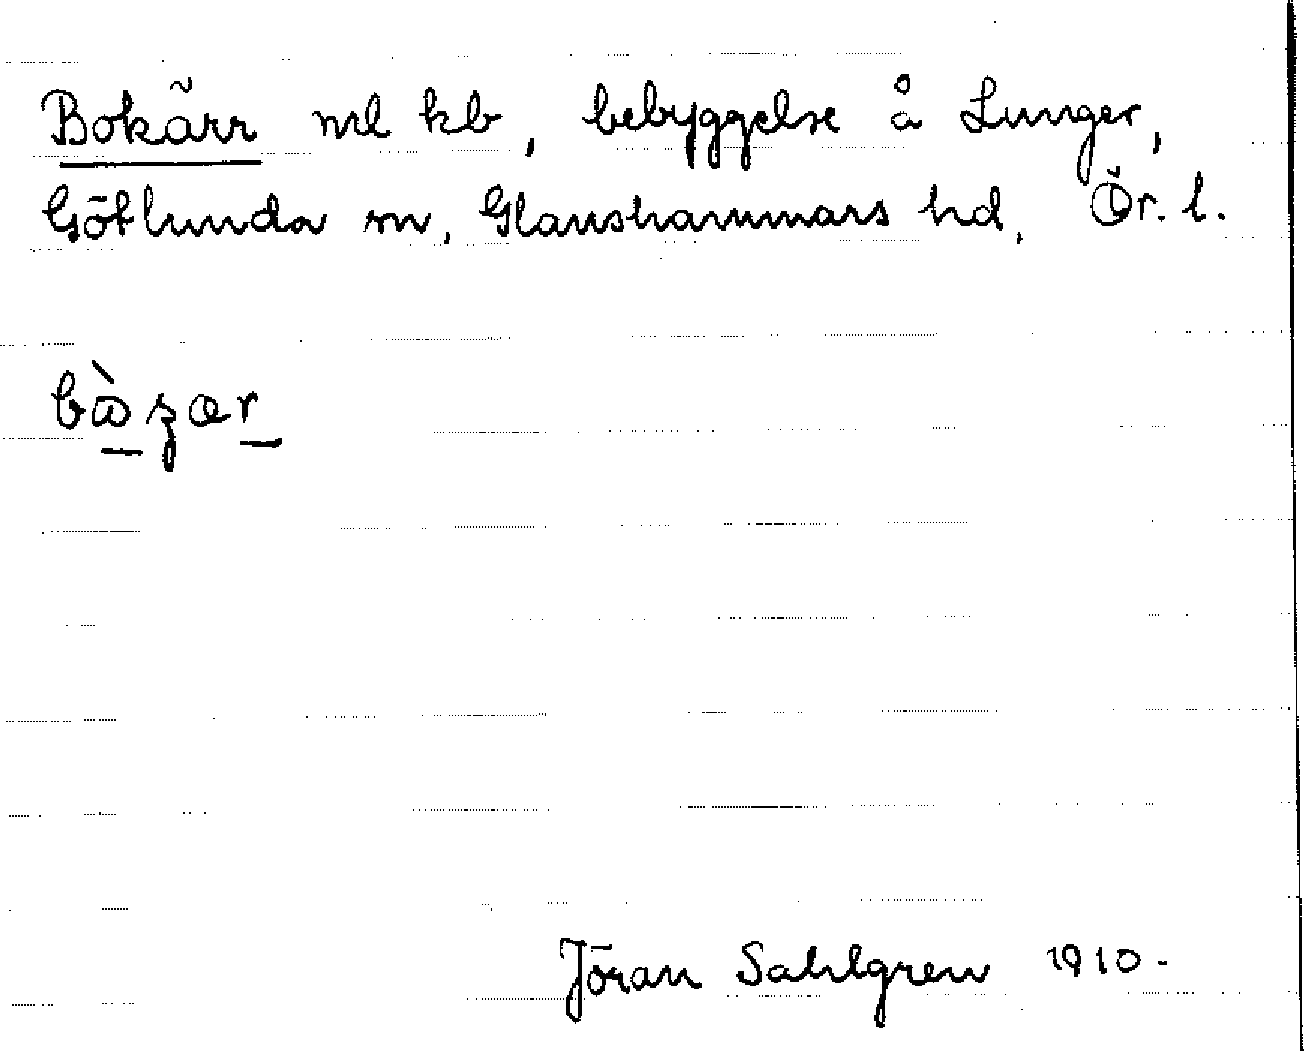 Bokärr ml kb, bebyggelse å Lunger,
Götlunda sn, Glanshammars hd, Ör. l.
Jöran Sahlgren 1910.